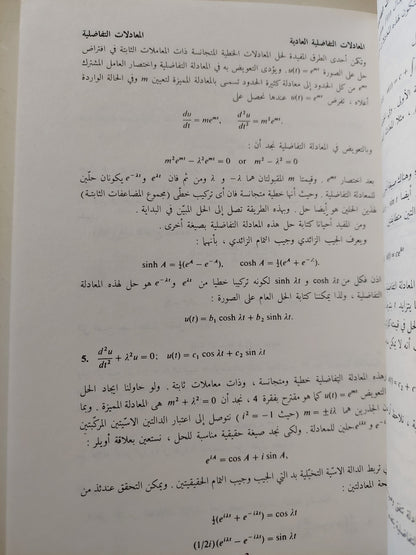 المعادلات التفاضلية العادية
المعادلات التفاضلية
وتكمن أجدى الطرق المفيدة لحل المعادلات الخطية المتجانسة ذات المعاملات الثابتة في افتراض
حل على الصورة u(t) = e^{mt} . ويؤدى التعويض به في المعادلة التفاضلية واختصار العامل المشترك
e^{mt} من كل الحدود إلى معادلة كثيرة الحدود تسمى بالمعادلة المميزة لتعيين m وفي الحالة الواردة
أعلاه ، نفرض u(t) = e^{mt} عندها نحصل على
du/dt = me^{mt}, d²u/dt² = m²e^{mt}.
وبالتعويض في المعادلة التفاضلية نجد أن :
m²e^{mt} − λ²e^{mt} = 0 or m² − λ² = 0
بعد اختصار e^{mt} . وقيمتا m المقبولتان هما λ− و λ ومن ثم فان e^{λt} و e^{−λt} يكونان حلّين
للمعادلة التفاضلية . وحيث أنها خطية متجانسة فان أى تركيب خطّي (مجموع المضاعفات الثابتة)
لهذين الحلين هو أيضا حل . وبهذه الطريقة نصل إلى الحل المبيّن في البداية .
ومن المفيد أحيانا كتابة حل هذه المعادلة التفاضلية بصيغة أخرى .
ويعرف الجيب الزائدي وجيب التمام الزائدي ، بأنهما :
sinh A = ½(e^A − e^{−A}), cosh A = ½(e^A + e^{−A}).
اذن فكل من cosh λt و sinh λt لكونه تركيبا خطيا من e^{λt} و e^{−λt} هو حل لهذه المعادلة
التفاضلية ، ولذا يمكننا كتابة الحل العام على الصورة :
u(t) = b₁ cosh λt + b₂ sinh λt
5. d²u/dt² + λ²u = 0; u(t) = c₁ cos λt + c₂ sin λt
وهذه المعادلة التفاضلية خطية ومتجانسة ، وذات معاملات ثابتة . ولو حاولنا ايجاد الحل
التعويض u(t) = e^{mt} كما هو مقترح بفقرة 4 ، نجد أن m² + λ² = 0 هي المعادلة المميزة . وبما
الجذرين هما m = ±iλ (حيث i² = −1) نتوصل إلى اعتبار الدالتين الاسيّتين المركبتين
e^{−iλt} حلين للمعادلة . ولكى نجد صيغة حقيقية مناسبة للحل ، نستعين بعلاقة أويلر :
e^{iA} = cos A + i sin A,
تربط الدالة الاسيّة التخيّلية بد التي الجيب وجيب التمام الحقيقيتين . ويمكن التحقق عندئذ من
المعادلتين :
½(e^{iλt} + e^{−iλt}) = cos λt
(1/2i)(e^{iλt} − e^{−iλt}) = sin λt